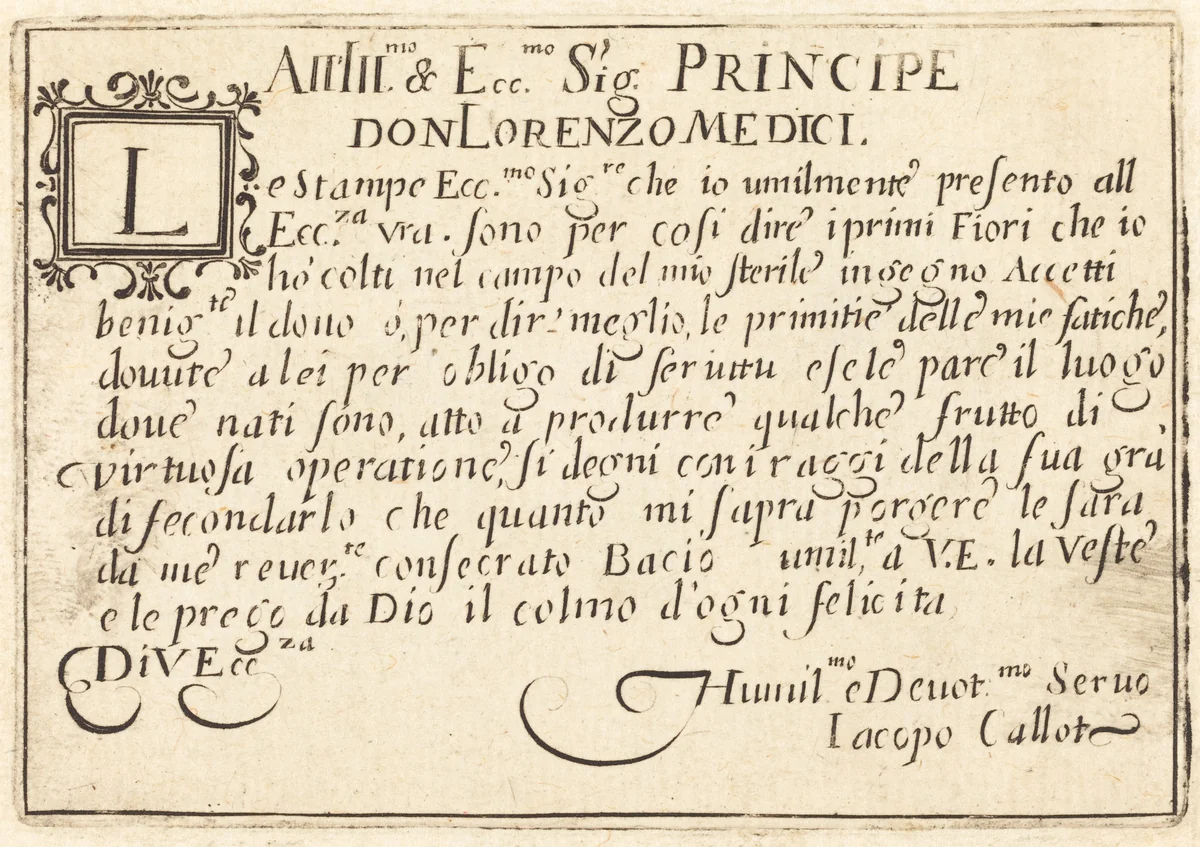 All'Ill.mo & Ecc.mo Sig.r PRINCIPE
DON LORENZO MEDICI.
Le Stampe Ecc.mo Sig.re che io umilmente presento all
Ecc.za vra. sono per cosi dire i primi Fiori che io
hò colti nel campo del mio sterile ingegno Accetti
benig.te il dono ò, per dir meglio, le primitie delle mie fatiche,
douute a lei per obligo di seruitu e se le pare il luogo
doue nati sono, atto a produrre qualche frutto di
virtuosa operatione, si degni con i raggi della sua gra
di fecondarlo che quanto mi sapra porgere le sara
da me reuer.te consecrato Bacio umil.te a V.E. la Veste
e le prego da Dio il colmo d'ogni felicita
Di V Ecc za
Humil.mo e Deuot.mo Seruo
Iacopo Callot